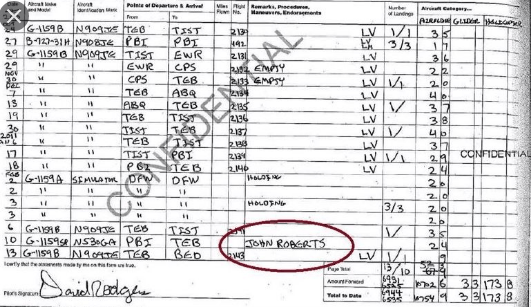 Aircraft Make and Model Aircraft Identification Mark Points of Departure & Arrival From To Flight No. Remarks, Procedures, Maneuvers, Endorsements Number of Landings Aircraft Category...
AIRPLANE GLIDER HELICOPTER
24 G-1159B N909JE TEB TIST 2130 LV 1/1 35
27 B-727-31H N908JE TEB PBI 492 LV 3/3 17
29 G-1159B N909JE TIST EWR 2131 LV 36
29 " " EWR CPS 2132 EMPTY LV 22
NOV 30 " " CPS TEB 2133 EMPTY LV 1/1 20
DEC 7 " " TEB ABQ LV 40
" " ABQ TEB 2135 LV 1/ 37
19 " " TEB TIST 2136 LV 38
30 " " TIST TEB 2137 LV 1/ 40
" " TEB TIST 2138 LV 37
17 " " TIST PBI 2139 LV 1/1 29
18 " " PBI TEB 2140 LV 24
FEB 2 G-1159A SIMULATOR DFW DFW HOLDING 20
2 " " " " 20
3 " " " " HOLDING 20
3 " " " " 3/3 20
6 G-1159B N909JE TEB TIST 1/ 35
10 G-1159B N530GA PBI TEB JOHN ROBERTS 24
13 G-1159B N909JE TEB BED 2143 LV 1/1 9
CONFIDENTIAL
CONFIDENTIAL
I certify that the statements made by me on this form are true.
Pilot's Signature David Rodgers
Page Total 13/10
Amount Forward 10702 6 33 173 8
Total to Date 10754 9 33 173 8